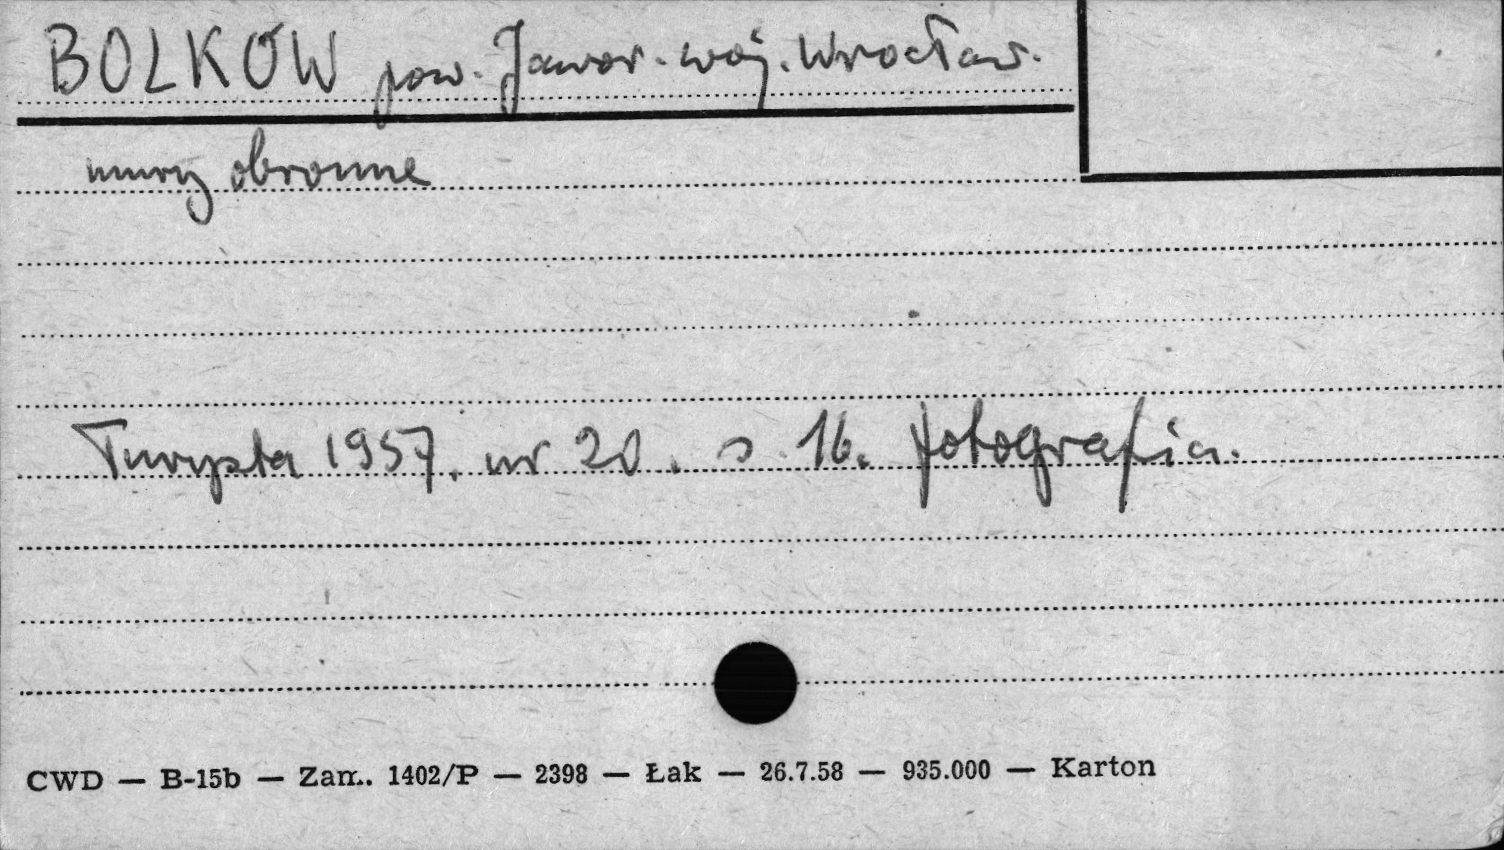 BOLKÓW pow. Jawor. woj. Wrocław.
mury obronne
Turysta 1957. nr 20. s. 16. fotografia.
CWD — B-15b — Zam. 1402/P — 2398 — Łak — 26.7.58 — 935.000 — Karton